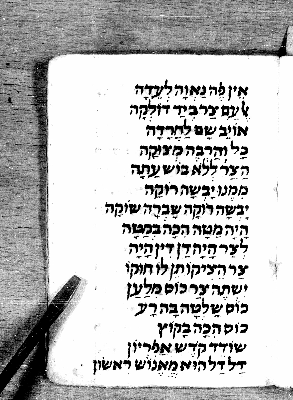 אין פה נאוה לעדה
עם צר ביד דולקה
אויב שם לחרדה
כל והרבה מצוקה
הצר ללא בוש עתה
ממנו יבשה רוקה
יבשה רוקה שברה שוקה
היה מטה הכה במטה
לצר היה דן דין היה
צר הציקו תן לו חוקו
ישתה צר כוס מלען
כוס שלטה בה רע
כוס הכה בקוץ
שודד קדש אפריון
דל דל הוא מאנוש ראשון